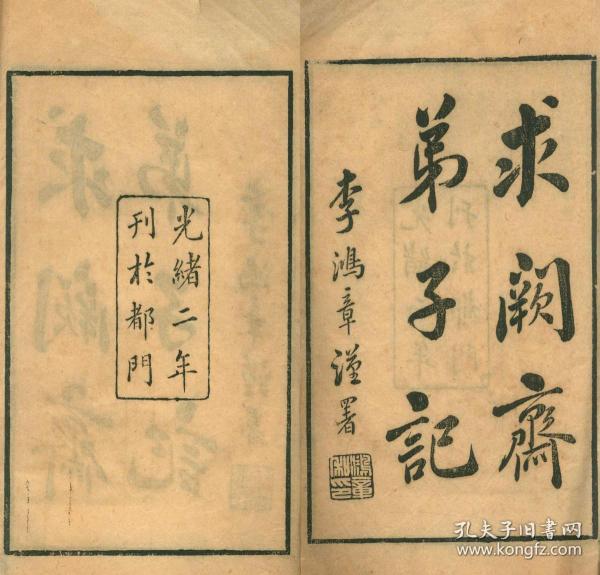 求闕齋
弟子記
李鴻章謹署
光緒二年
刊於都門
孔夫子旧书网
www.kongfz.com